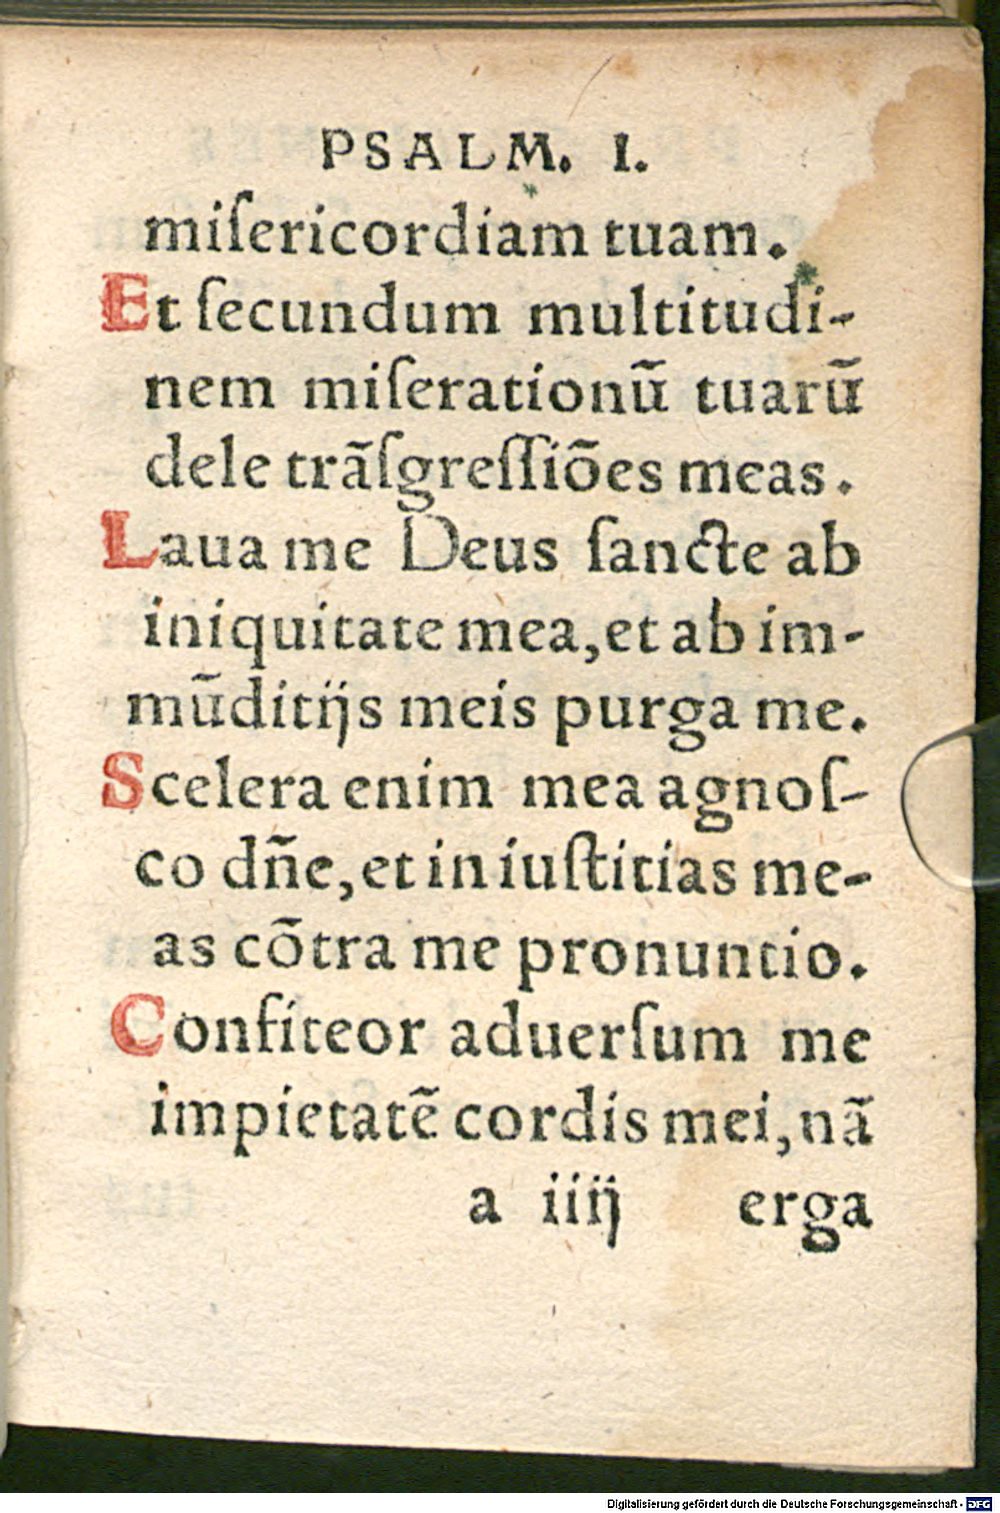 PSALM. I.
miſericordiam tuam.
Et ſecundum multitudi-
nem miſerationũ tuarũ
dele trãſgreſſiões meas.
Laua me Deus ſancte ab
iniquitate mea, et ab im-
mũditijs meis purga me.
Scelera enim mea agnoſ-
co dñe, et in iuſtitias me-
as cõtra me pronuntio.
Confiteor aduerſum me
impietatẽ cordis mei, nã
a iiij erga
Digitalisierung gefördert durch die Deutsche Forschungsgemeinschaft - DFG